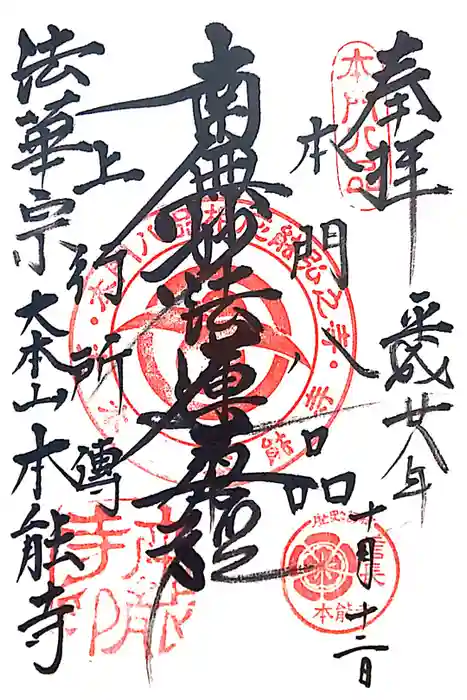 奉拝
平成廿八年
十月十二日
本門八品
南無妙法蓮華経
上行所傳
法華宗
大本山
本能寺
本門八品
本能寺